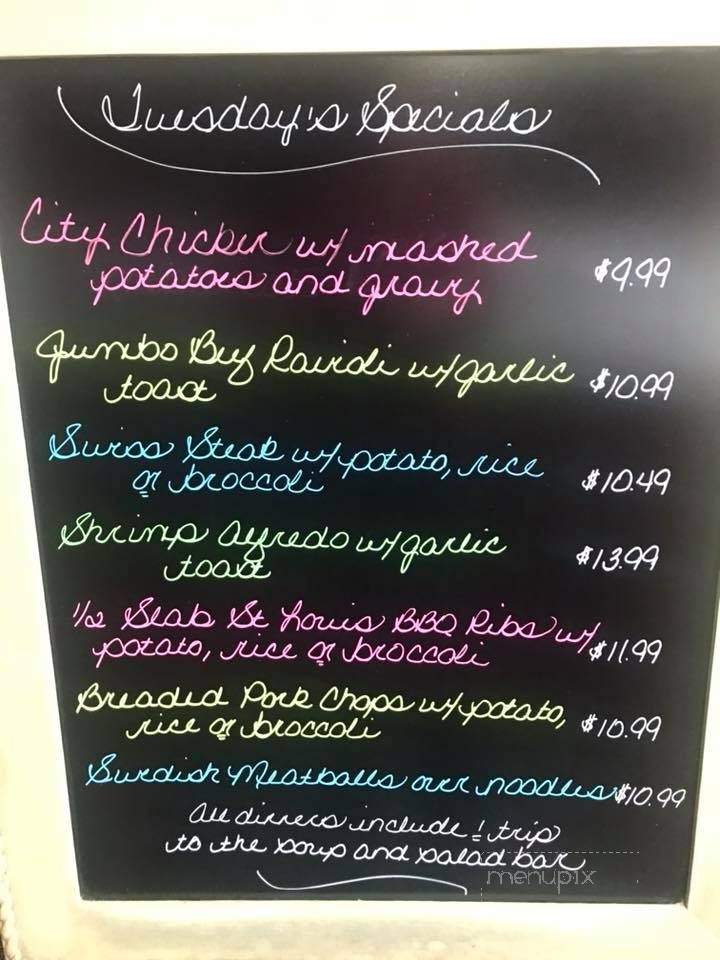 Tuesday's Specials
City Chicken w/ mashed
potatoes and gravy $9.99
Jumbo Beef Ravioli w/ garlic
toast $10.99
Swiss Steak w/ potato, rice
or broccoli $10.49
Shrimp Alfredo w/ garlic
toast $13.99
1/2 Slab St Louis BBQ Ribs w/
potato, rice or broccoli $11.99
Breaded Pork Chops w/ potato,
rice or broccoli $10.99
Swedish Meatballs over noodles $10.99
All dinners include 1 trip
to the soup and salad bar
menupix